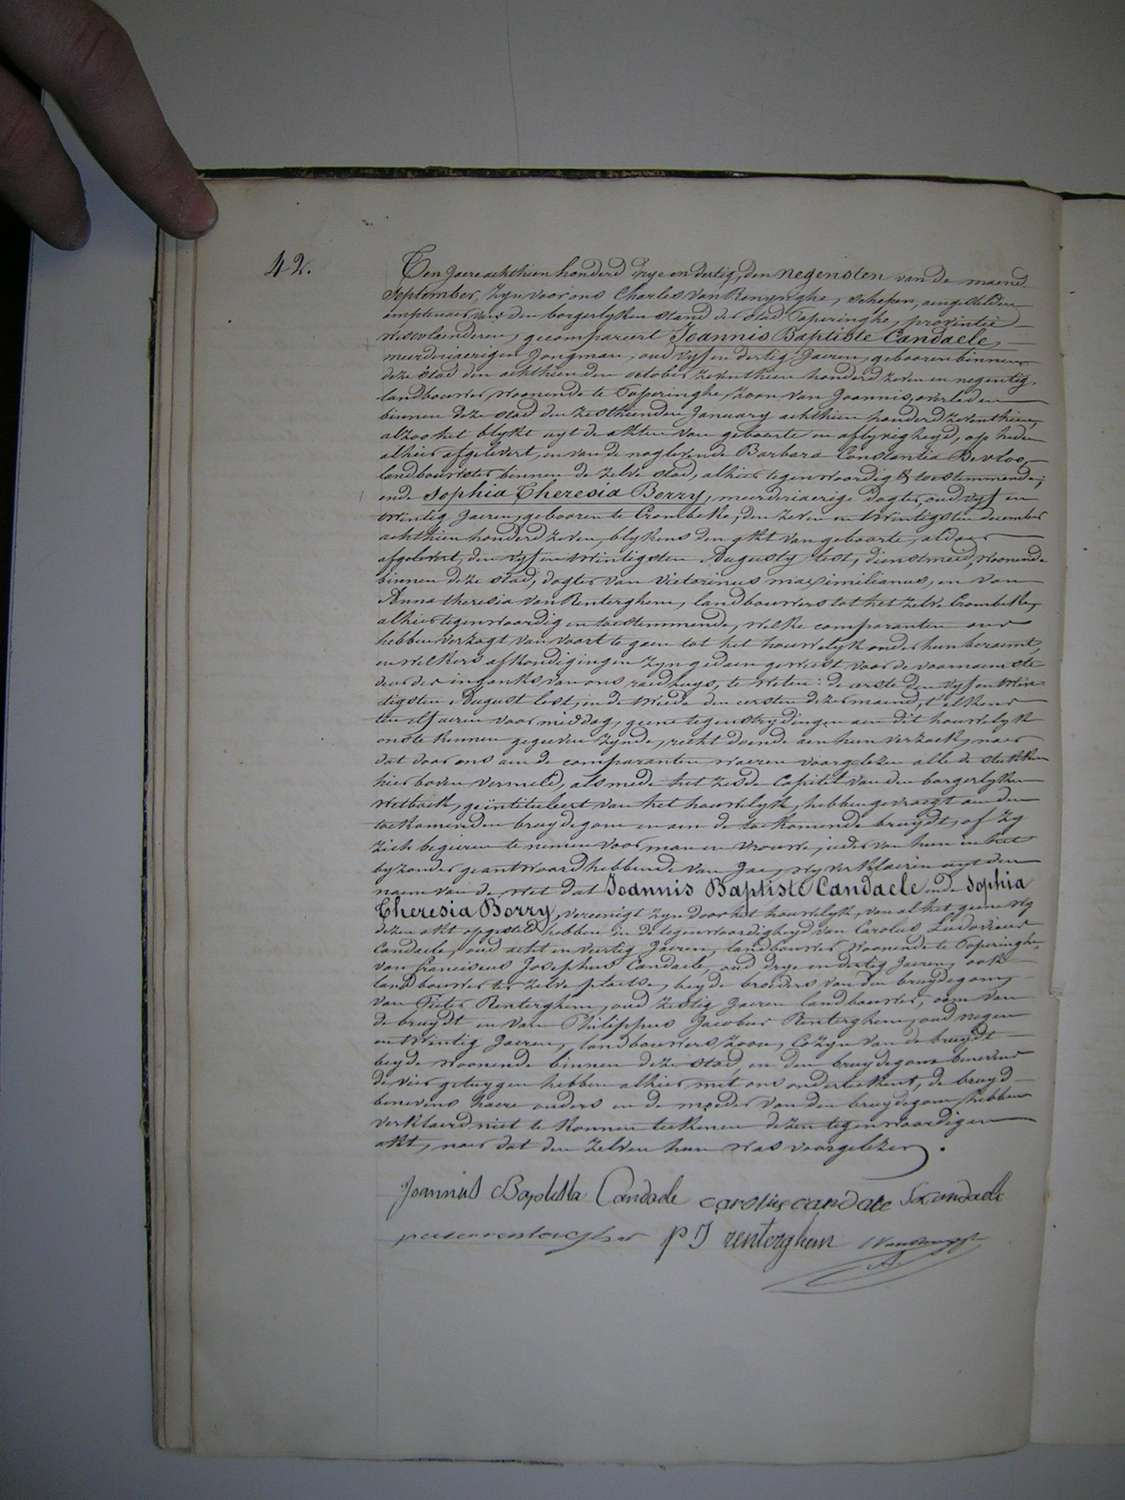 42.
Ten Jaere achthien honderd drye en dertig, den negensten van de maend
September, zyn voor ons Charles Van Renynghe, schepen, aengestelden
amptenaer van den borgerlyken stand der stad Poperinghe, provintie
Westvlaenderen, gecompareert Joannis Baptiste Candaele,
meerderjaerigen Jongman, oud vyf en dertig Jaeren, gebooren binnen
deze stad den achthienden october zeventhien honderd zeven en negentig,
landbouwer, woonende te Poperinghe, zoon van Joannis, overleden
binnen deze stad den zesthienden January achthien honderd zeventhien,
alzoo het blykt uyt de akten van geboorte en aflyvigheyd, op heden
alhier afgelevert, en van de nogleevende Barbara Constantia Devloo,
landbouwster binnen de zelve stad, alhier tegenwoordig & toestemmende;
ende Sophia Theresia Borry, meerderjaerige Dogter, oud vyf en
twintig Jaeren, gebooren te Crombeke, den zeven en twintigsten december
achthien honderd zeven, blykens den akt van geboorte, aldaer
afgelevert, den vyf en twintigsten Augusty lest, dienstmeid, woonende
binnen deze stad, dogter van Victorinus maximilianus, en van
Anna theresia Van Renterghem, landbouwers tot het zelve Crombeke,
alhier tegenwoordig en toestemmende, welke comparanten ons
hebben verzogt van voort te gaen tot het houwelyk onder hun beraemt,
en welkers afkondigingen zyn gedaen geweest voor de voornaemste
deur der ingank van ons raedhuys, te weten: de eerste den vyf en twin
tigsten August lest, en de tweede den eersten dezer maend, t'elkens
ten elf uren voor middag, geene tegenstrydingen aen dit houwelyk
ons te kennen gegeeven zynde, recht doende aen hun verzoek, naer
dat door ons aen de comparanten waeren voorgelezen alle de stukken
hier boven vermeld, als mede het zesde Capitel van den borgerlyken
Wetboek, geïntituleert van het houwelyk, hebben gevraegt aen den
toekomenden bruydegom en aen de toekomende bruydt, of zy
zich begeeren te nemen voor man en vrouwe, jeder van hun in het
byzonder geantwoord hebbende van Jae, wy verklaeren uyt den
naem van de wet dat Joannis Baptiste Candaele ende Sophia
Theresia Borry, vereenigt zyn door het houwelyk, van al het geene wy
dezen akt opgesteld hebben in de tegenwoordigheyd van Carolus Ludovicus
Candaele, oud acht en veertig Jaeren, landbouwer woonende te Poperinghe,
van franciscus Josephus Candaele, oud drye en dertig Jaeren, ook
landbouwer ter zelve plaetse, beyde broeders van den bruydegom,
van Pieter Renterghem, oud zestig Jaeren landbouwer, oom van
de bruydt en van Philippus Jacobus Renterghem, oud negen
en twintig Jaeren, landbouwers zoon, Cozyn van de bruydt
beyde woonende binnen deze stad, en den bruydegom benevens
de vier getuygen hebben alhier met ons onderteekent, de bruyd
benevens haere ouders en de moeder van den bruydegom hebben
verklaerd niet te konnen teekenen dezen tegenwoordigen
akt, naer dat den zelven hun was voorgelezen.
Joannis Baptista Candaele carolus candaele candaele
p J renterghem